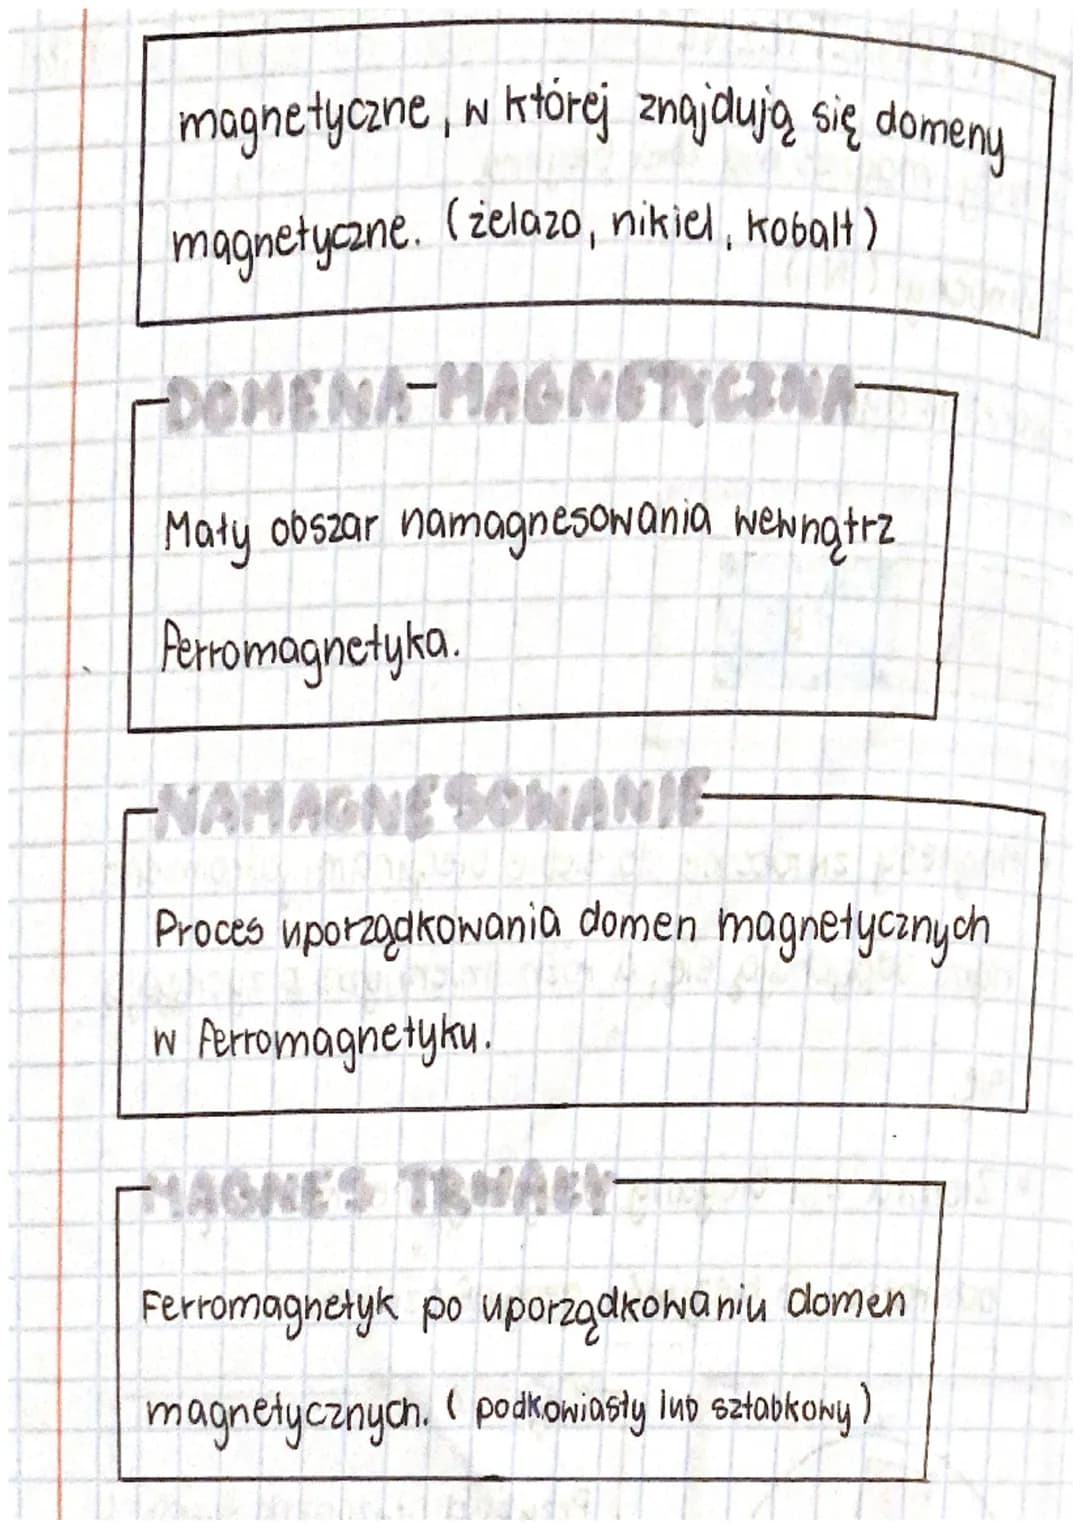 magnetyczne, w której znajdują się domeny
magnetyczne. (żelazo, nikiel, kobalt)
DOMENA MAGNETYCZNA
Mały obszar namagnesowania wewnątrz
ferromagnetyka.
NAMAGNESOWANIE
Proces uporządkowania domen magnetycznych
w ferromagnetyku.
MAGNES TRWAŁY
Ferromagnetyk po uporządkowaniu domen
magnetycznych. (podkowiasty lub sztabkowy)